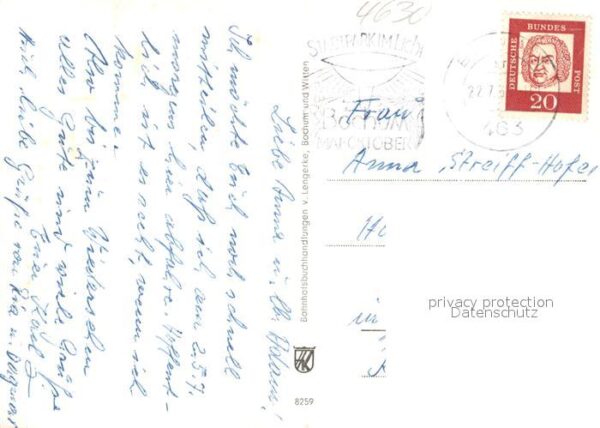 4630
STADTPARK IM LICHT
BOCHUM
MAI-OKTOBER
22.7.6
463
DEUTSCHE BUNDES POST
20
Frau
Anna Streiff-Hofer
Ho
in
privacy protection
Datenschutz
Bahnhofsbuchhandlungen v. Lengerke, Bochum und Witten
8259
Liebe Anna u. lb. Adam!
Ich möchte Euch noch schnell
mitteilen, daß ich am 25.7.
morgens hier abfahre. Hoffent-
lich ist es recht, wenn ich
komme.
Also bis zum Wiedersehen
alles Gute und viele Grüße
Eure
Auch liebe Grüße von Ria u. Dagmar